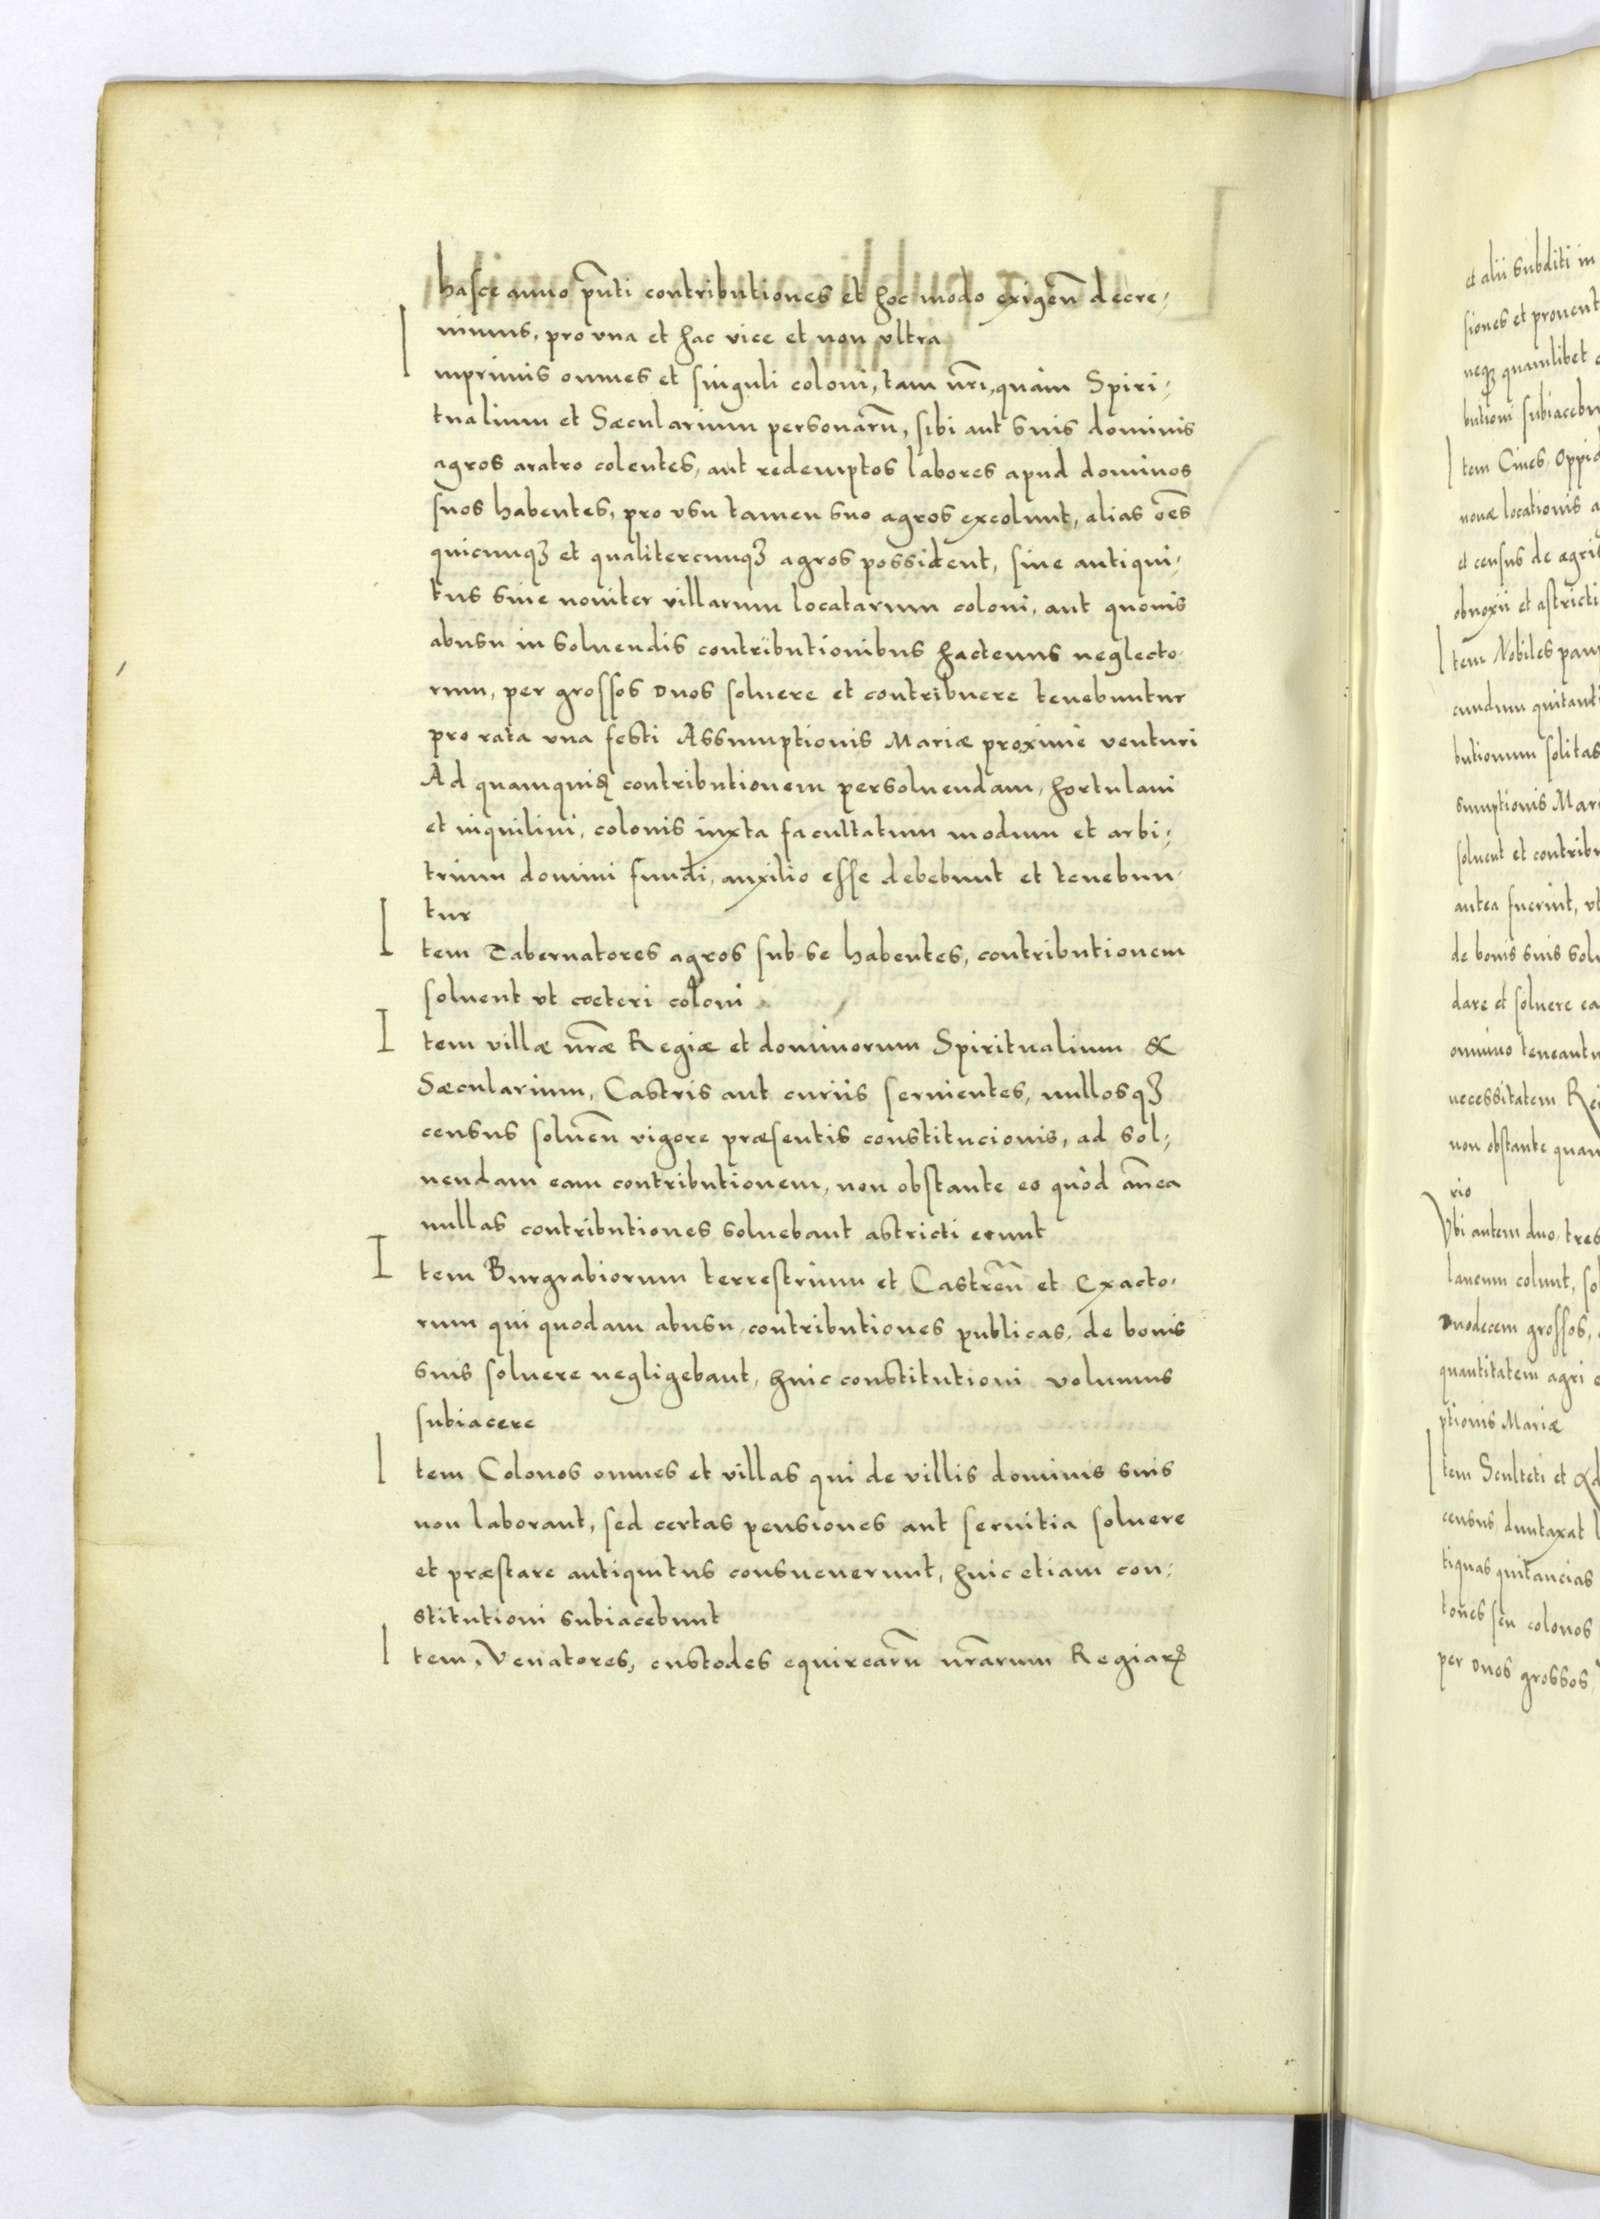 hasce anno pñti contributiones et hoc modo exigeñ decre⸗
uimus, pro vna et hac vice et non vltra
Inprimis omnes et singuli coloni, tam nr̃i, quàm Spiri⸗
tualium et Sæcularium personarũ, sibi aut suis dominis
agros aratro colentes, aut redemptos labores apud dominos
suos habentes, pro vsu tamen suo agros excolunt, alias oẽs
quicunqꝫ et qualitercunqꝫ agros possident, siue antiqui⸗
tus siue nouiter villarum locatarum coloni, aut quouis
abusu in soluendis contributionibus hactenus neglecto
rum, per grossos duos soluere et contribuere tenebuntur
pro rata vna festi Assumptionis Mariæ proximè venturi
Ad quamquiꝗ contributionem persoluendam, hortulani
et inquilini, colonis iuxta facultatum modum et arbi⸗
trium domini fundi, auxilio esse debebunt et tenebun
tur
Item Tabernatores agros sub se habentes, contributionem
soluent vt cœteri coloni
Item villæ nr̃æ Regiæ et dominorum Spiritualium &
Sæcularium, Castris aut curiis seruientes, nullosqꝫ
census solueñ vigore præsentis constitucionis, ad sol⸗
uendam eam contributionem, non obstante eo quòd añea
nullas contributiones soluebant astricti erunt
Item Burgrabiorum terrestrium et Castreñ et Exacto⸗
rum qui quodam abusu, contributiones publicas, de bonis
suis soluere negligebant, huic constitutioni volumus
subiacere
Item Colonos omnes et villas qui de villis dominis suis
non laborant, sed certas pensiones aut seruitia soluere
et præstare antiquitus consueuerunt, huic etiam con⸗
stitutioni subiacebunt
Item, Venatores, custodes equirearũ nr̃arum Regiarꝝ
et alii subditi in
siones et prouent
neqꝫ quamlibet
butioni subiacebu
Item Ciues, Oppid
nouæ locationis a
et census de agri
obnoxii et astricti
Item Nobiles pau
cundum quitanti
butionum solitas
sumptionis Mari
soluent et contribu
antea fuerint, vt
de bonis suis solu
dare et soluere ea
omnino teneantu
necessitatem Re
non obstante quam
rio
Vbi autem duo, tres
laneum colunt, so
duodecem grossos,
quantitatem agri
ptionis Mariæ
Item Sculteti et Ad
census duntaxat l
tiquas quitancias
tones seu colonos
per duos grossos,